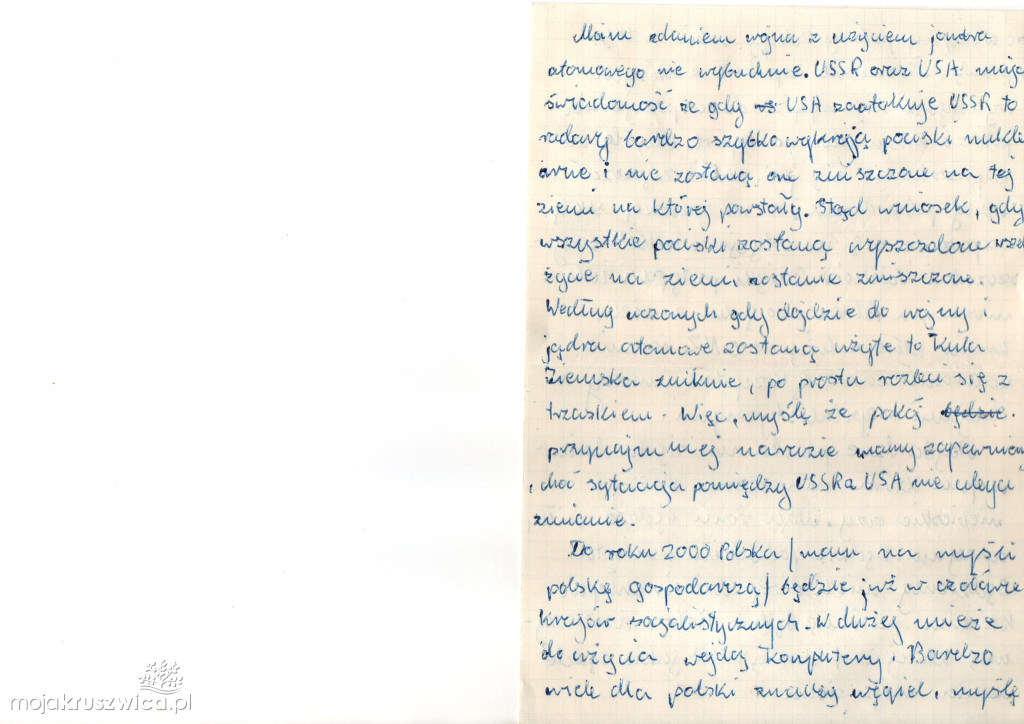 Moim zdaniem wojna z użyciem jondra
atomowego nie wybuchnie. USSR oraz USA mają
świadomość że gdy USA zaatakuje USSR to
radary bardzo szybko wykryją pociski nukle
arne i nie zostaną one zniszczone na tej
ziemi na której powstały. Stąd wniosek, gdy
wszystkie pociski zostaną wyszczelone wszel
życie na ziemi zostanie zniszczone.
Według uczonych gdy dojdzie do wojny i
jądra atomowe zostaną użyte to Kula
Ziemska zniknie, po prostu rozleci się z
trzaskiem. Więc, myślę że pokój będzie.
przynajmniej narazie mamy zapewniony
, choć sytuacja pomiędzy USSR a USA nie ulega
zmianie.
Do roku 2000 Polska /mam na myśli
polskę gospodarczą/ będzie już w czołówce
Krajów socjalistycznych. W dużej mieże
do użycia wejdą komputery. Bardzo
wiele dla polski znaczy węgiel, myślę
mojakruszwica.pl